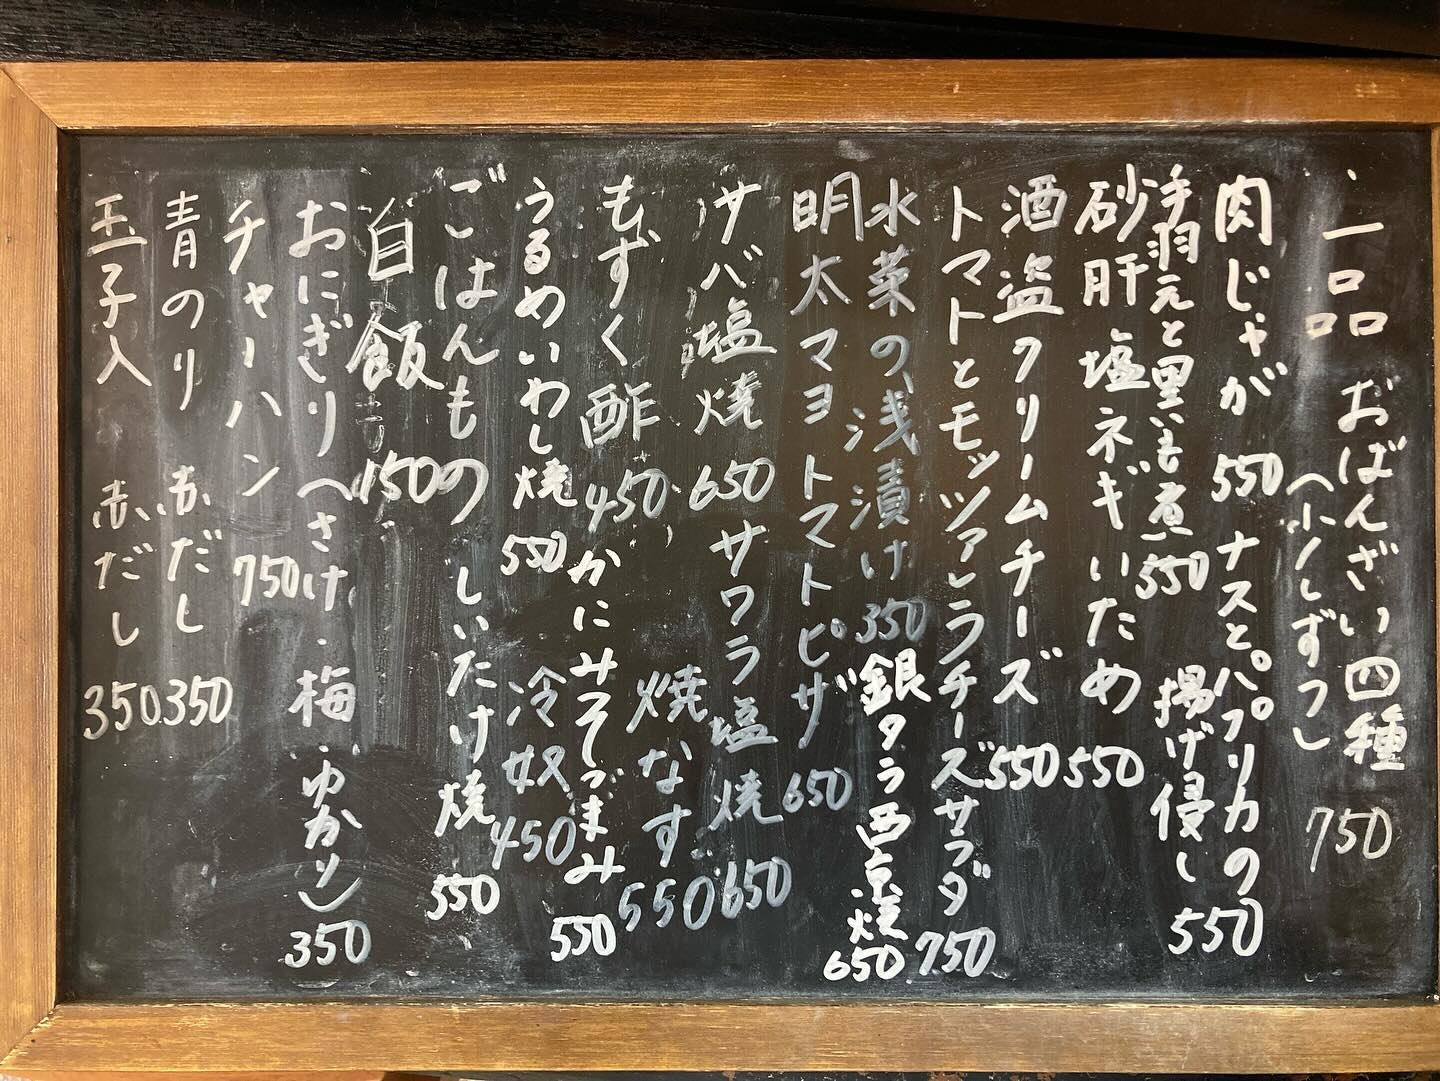 一品 おばんざい四種
(少しずつ) 750
肉じゃが 550 ナスとパプリカの
揚げ浸し 550
手羽元と里いも煮 550
砂肝塩ネギいため 550
酒盗クリームチーズ 550
トマトとモッツァレラチーズサラダ 750
水菜の浅漬け 350 銀ダラ西京焼 650
明太マヨトマトピザ 650
サバ塩焼 650 サワラ塩焼 650
焼なす 550
もずく酢 450 かにみそつまみ 550
うるめいわし焼 550 冷奴 450
ごはんもの しいたけ焼 550
白飯 150
おにぎり(さけ・梅・ゆかり) 350
チャーハン 750
青のり 赤だし 350
玉子入 赤だし 350